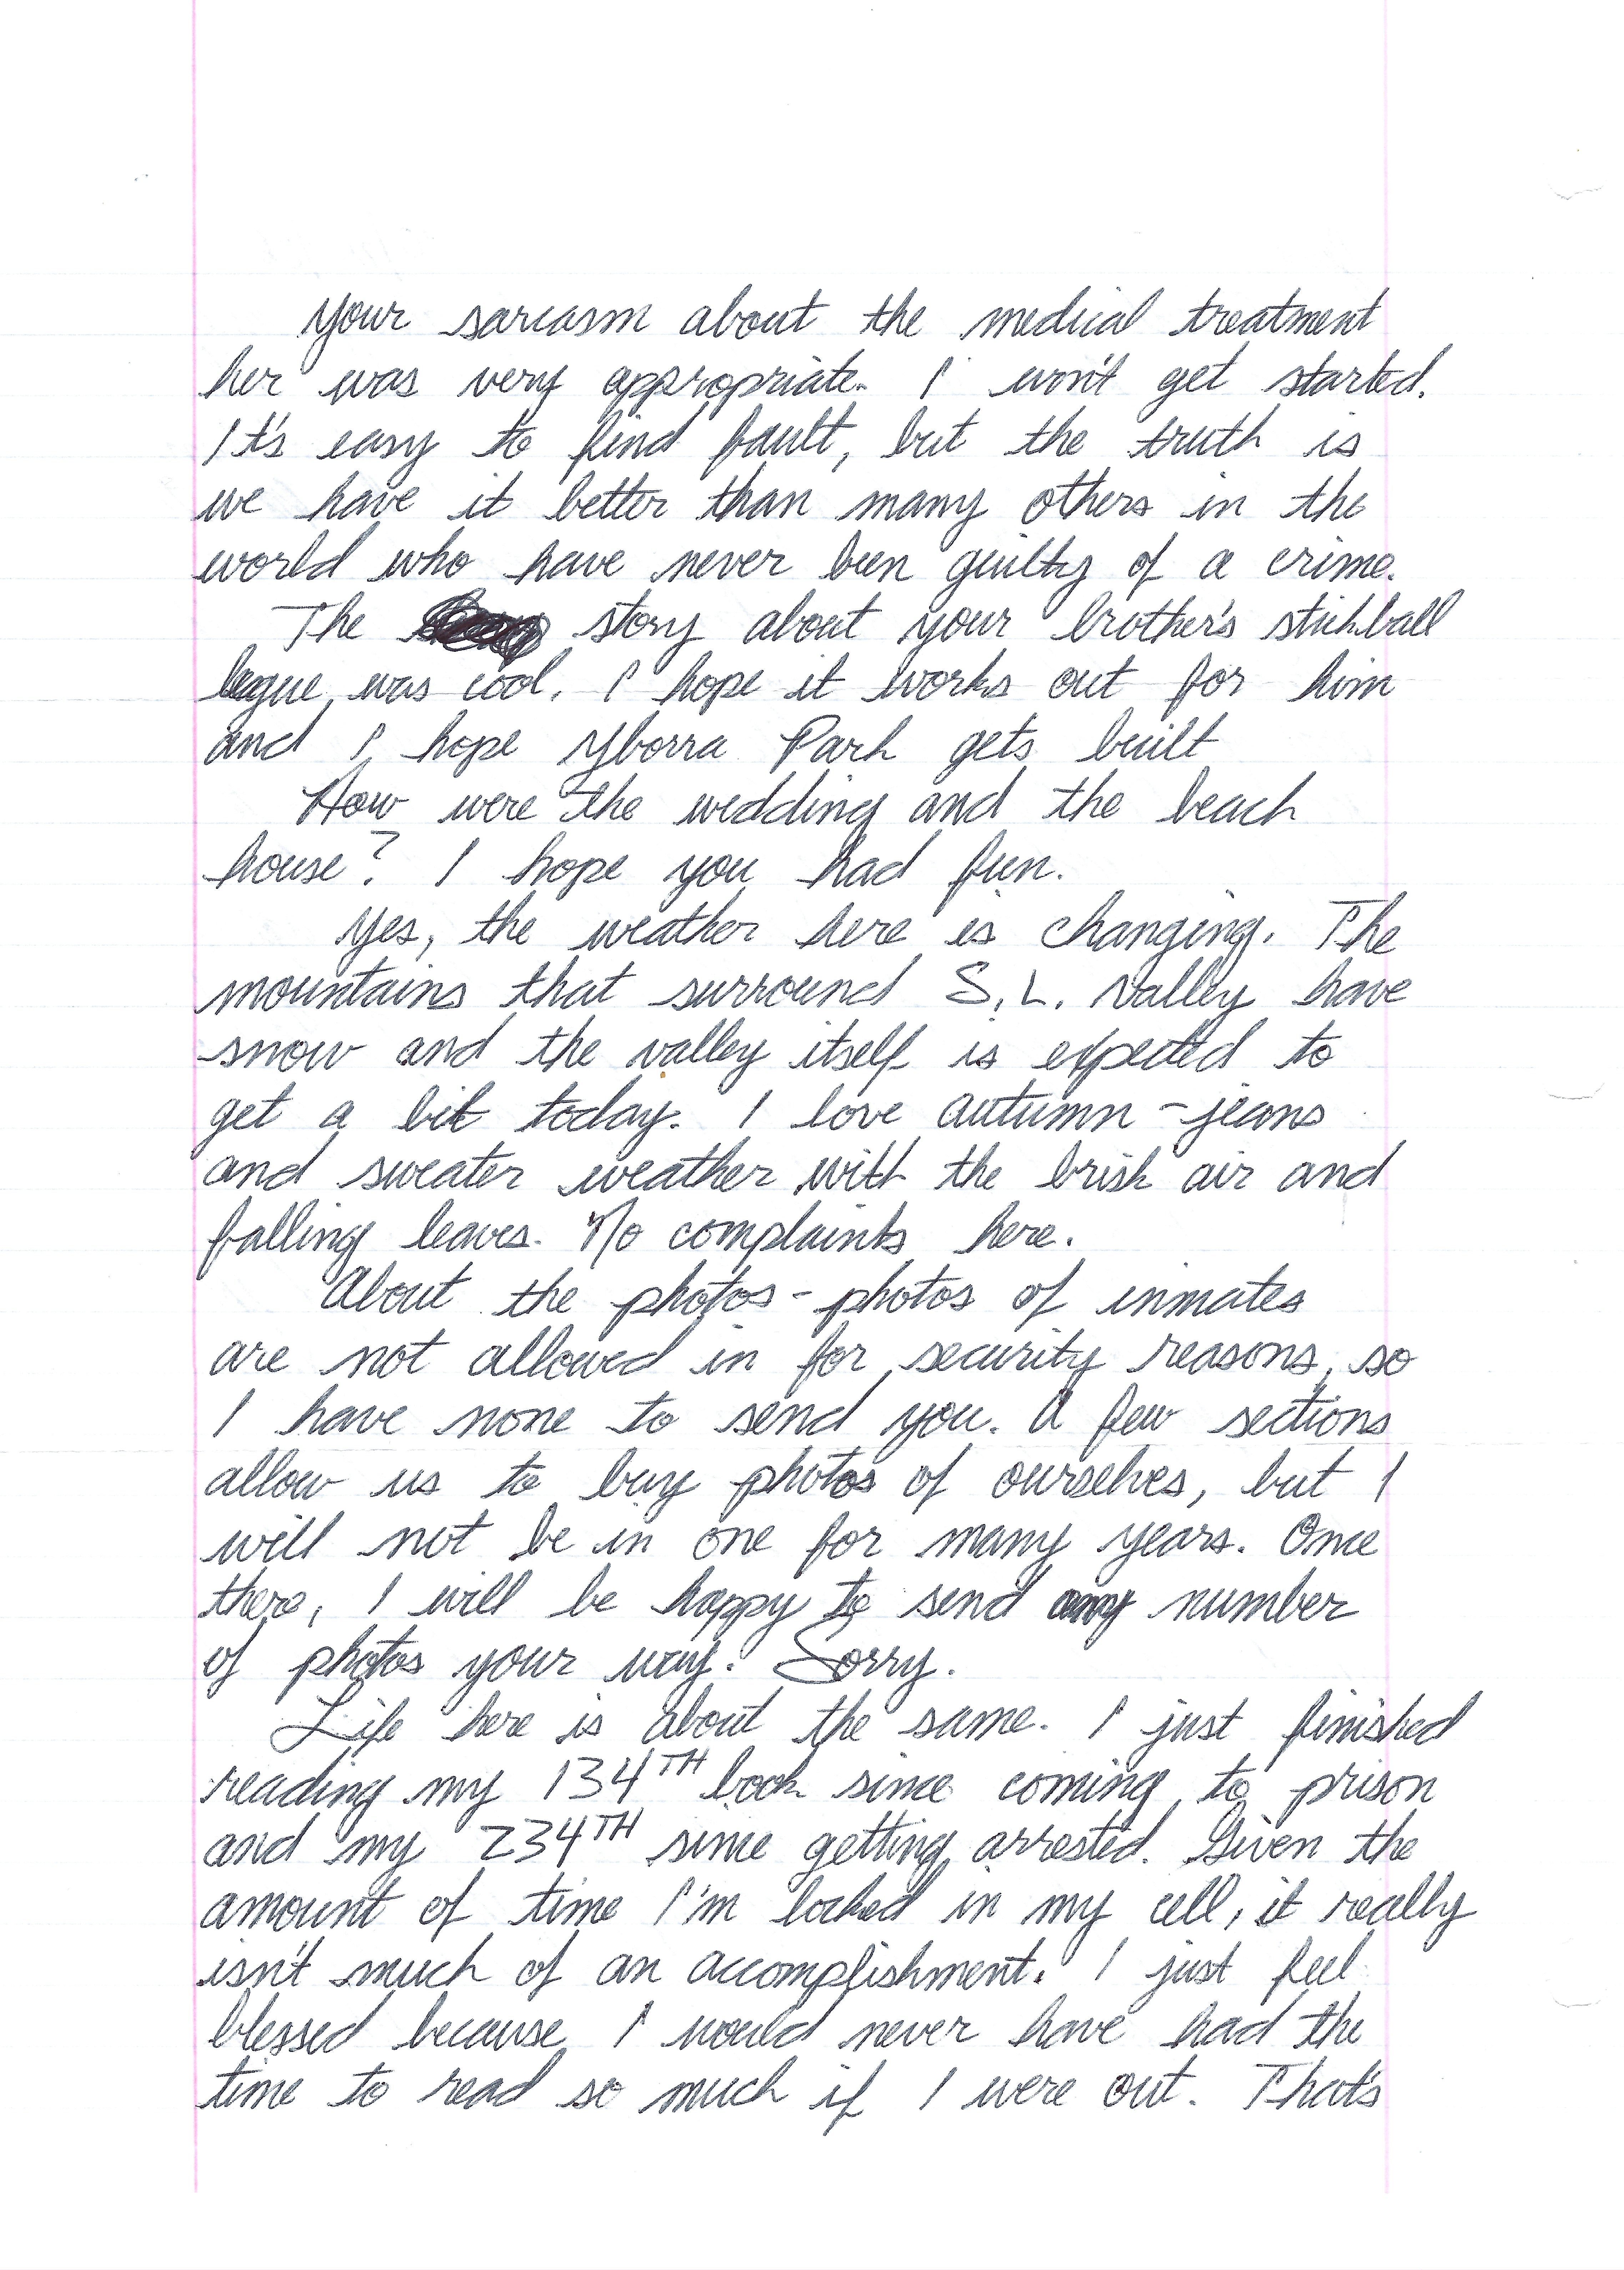 Your sarcasm about the medical treatment
her was very appropriate. I won't get started.
It's easy to find fault, but the truth is
we have it better than many others in the
world who have never been guilty of a crime.
The story about your brother's stickball
legue was cool. I hope it works out for him
and I hope Yborra Park gets built
How were the wedding and the beach
house? I hope you had fun.
Yes, the weather here is changing. The
mountains that surround S.L. Valley have
snow and the valley itself is expected to
get a bit today. I love autumn - jeans
and sweater weather with the brisk air and
falling leaves. No complaints here.
About the photos - photos of inmates
are not allowed in for security reasons, so
I have none to send you. A few sections
allow us to buy photos of ourselves, but I
will not be in one for many years. Once
there, I will be happy to send any number
of photos your way. Sorry.
Life here is about the same. I just finished
reading my 134TH book since coming to prison
and my 234TH since getting arrested. Given the
amount of time I'm locked in my cell, it really
isn't much of an accomplishment. I just feel
blessed because I would never have had the
time to read so much if I were out. That's